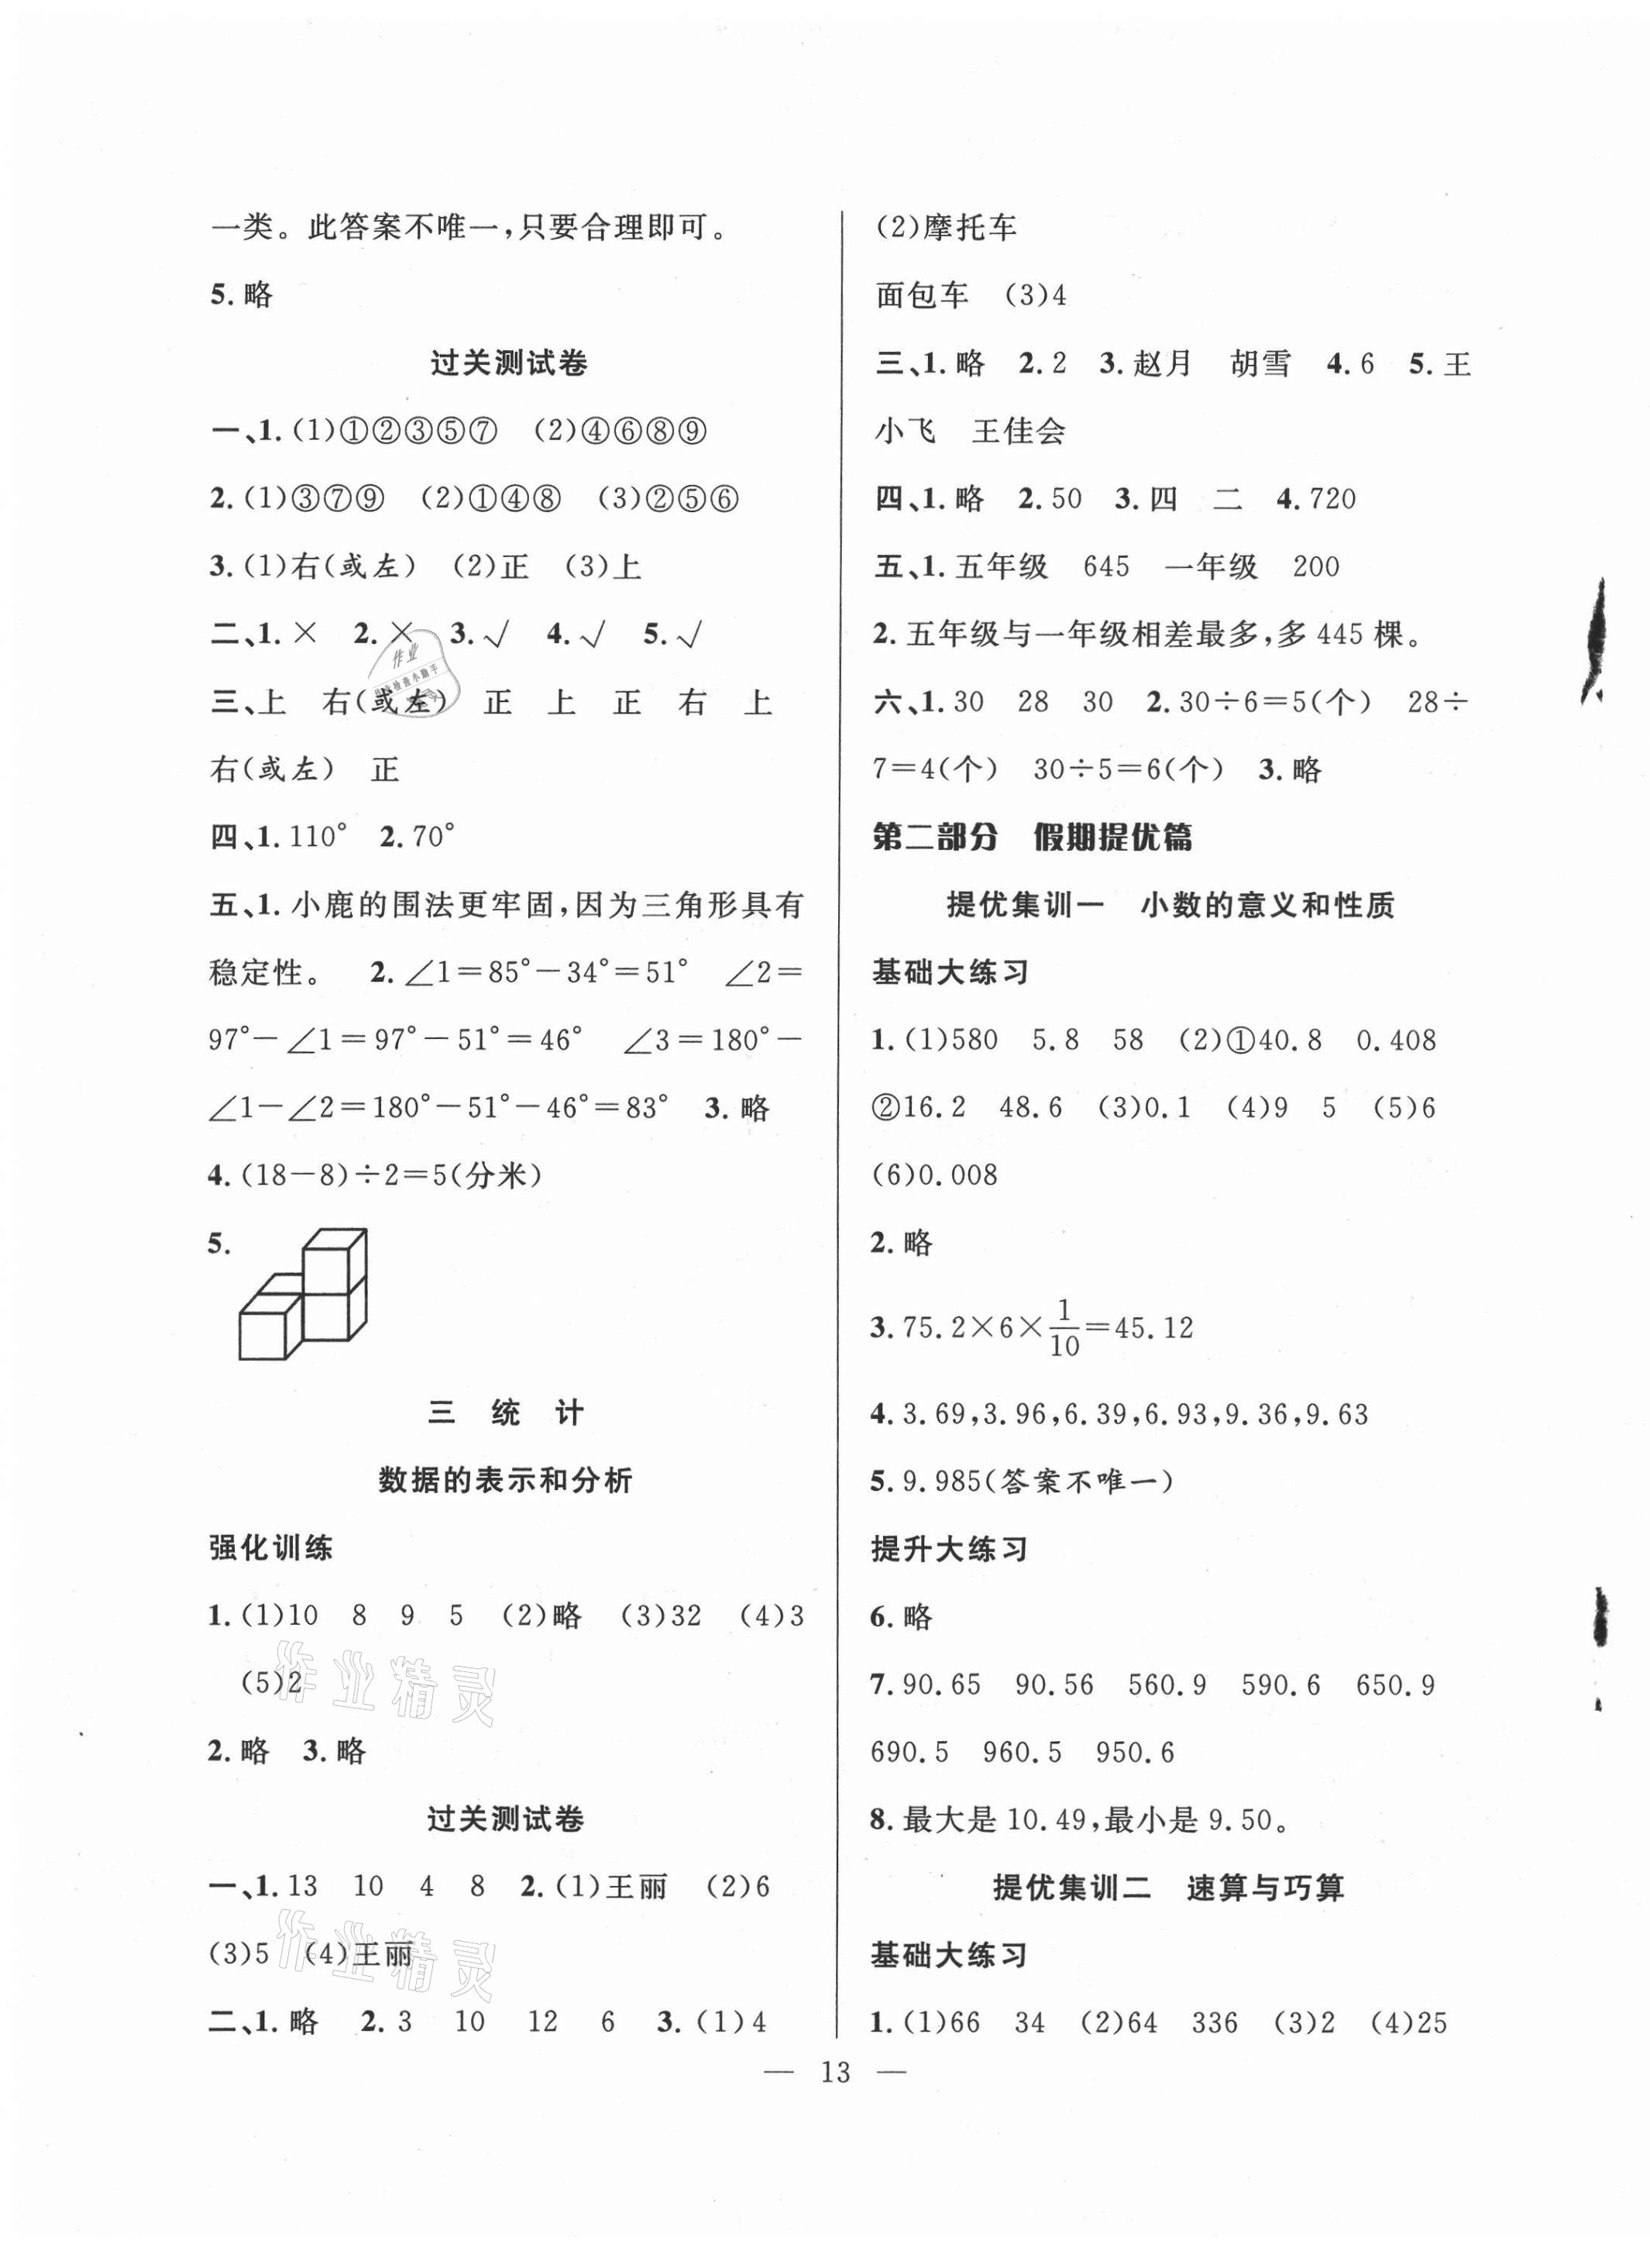 一类。此答案不唯一,只要合理即可。
5.略
过关测试卷
一、1.(1)①②③⑤⑦ (2)④⑥⑧⑨
2.(1)③⑦⑨ (2)①④⑧ (3)②⑤⑥
3.(1)右(或左) (2)正 (3)上
二、1.× 2.× 3.√ 4.√ 5.√
三、上 右(或左) 正 上 正 右 上
右(或左) 正
四、1.110° 2.70°
五、1.小鹿的围法更牢固,因为三角形具有
稳定性。 2.∠1=85°-34°=51° ∠2=
97°-∠1=97°-51°=46° ∠3=180°-
∠1-∠2=180°-51°-46°=83° 3.略
4.(18-8)÷2=5(分米)
5.
三 统 计
数据的表示和分析
强化训练
1.(1)10 8 9 5 (2)略 (3)32 (4)3
(5)2
2.略 3.略
过关测试卷
一、1.13 10 4 8 2.(1)王丽 (2)6
(3)5 (4)王丽
二、1.略 2.3 10 12 6 3.(1)4
(2)摩托车
面包车 (3)4
三、1.略 2.2 3.赵月 胡雪 4.6 5.王
小飞 王佳会
四、1.略 2.50 3.四 二 4.720
五、1.五年级 645 一年级 200
2.五年级与一年级相差最多,多445棵。
六、1.30 28 30 2.30÷6=5(个) 28÷
7=4(个) 30÷5=6(个) 3.略
第二部分 假期提优篇
提优集训一 小数的意义和性质
基础大练习
1.(1)580 5.8 58 (2)①40.8 0.408
②16.2 48.6 (3)0.1 (4)9 5 (5)6
(6)0.008
2.略
3.75.2×6×1/10=45.12
4.3.69,3.96,6.39,6.93,9.36,9.63
5.9.985(答案不唯一)
提升大练习
6.略
7.90.65 90.56 560.9 590.6 650.9
690.5 960.5 950.6
8.最大是10.49,最小是9.50。
提优集训二 速算与巧算
基础大练习
1.(1)66 34 (2)64 336 (3)2 (4)25
— 13 —
作业
作业精灵
作业精灵